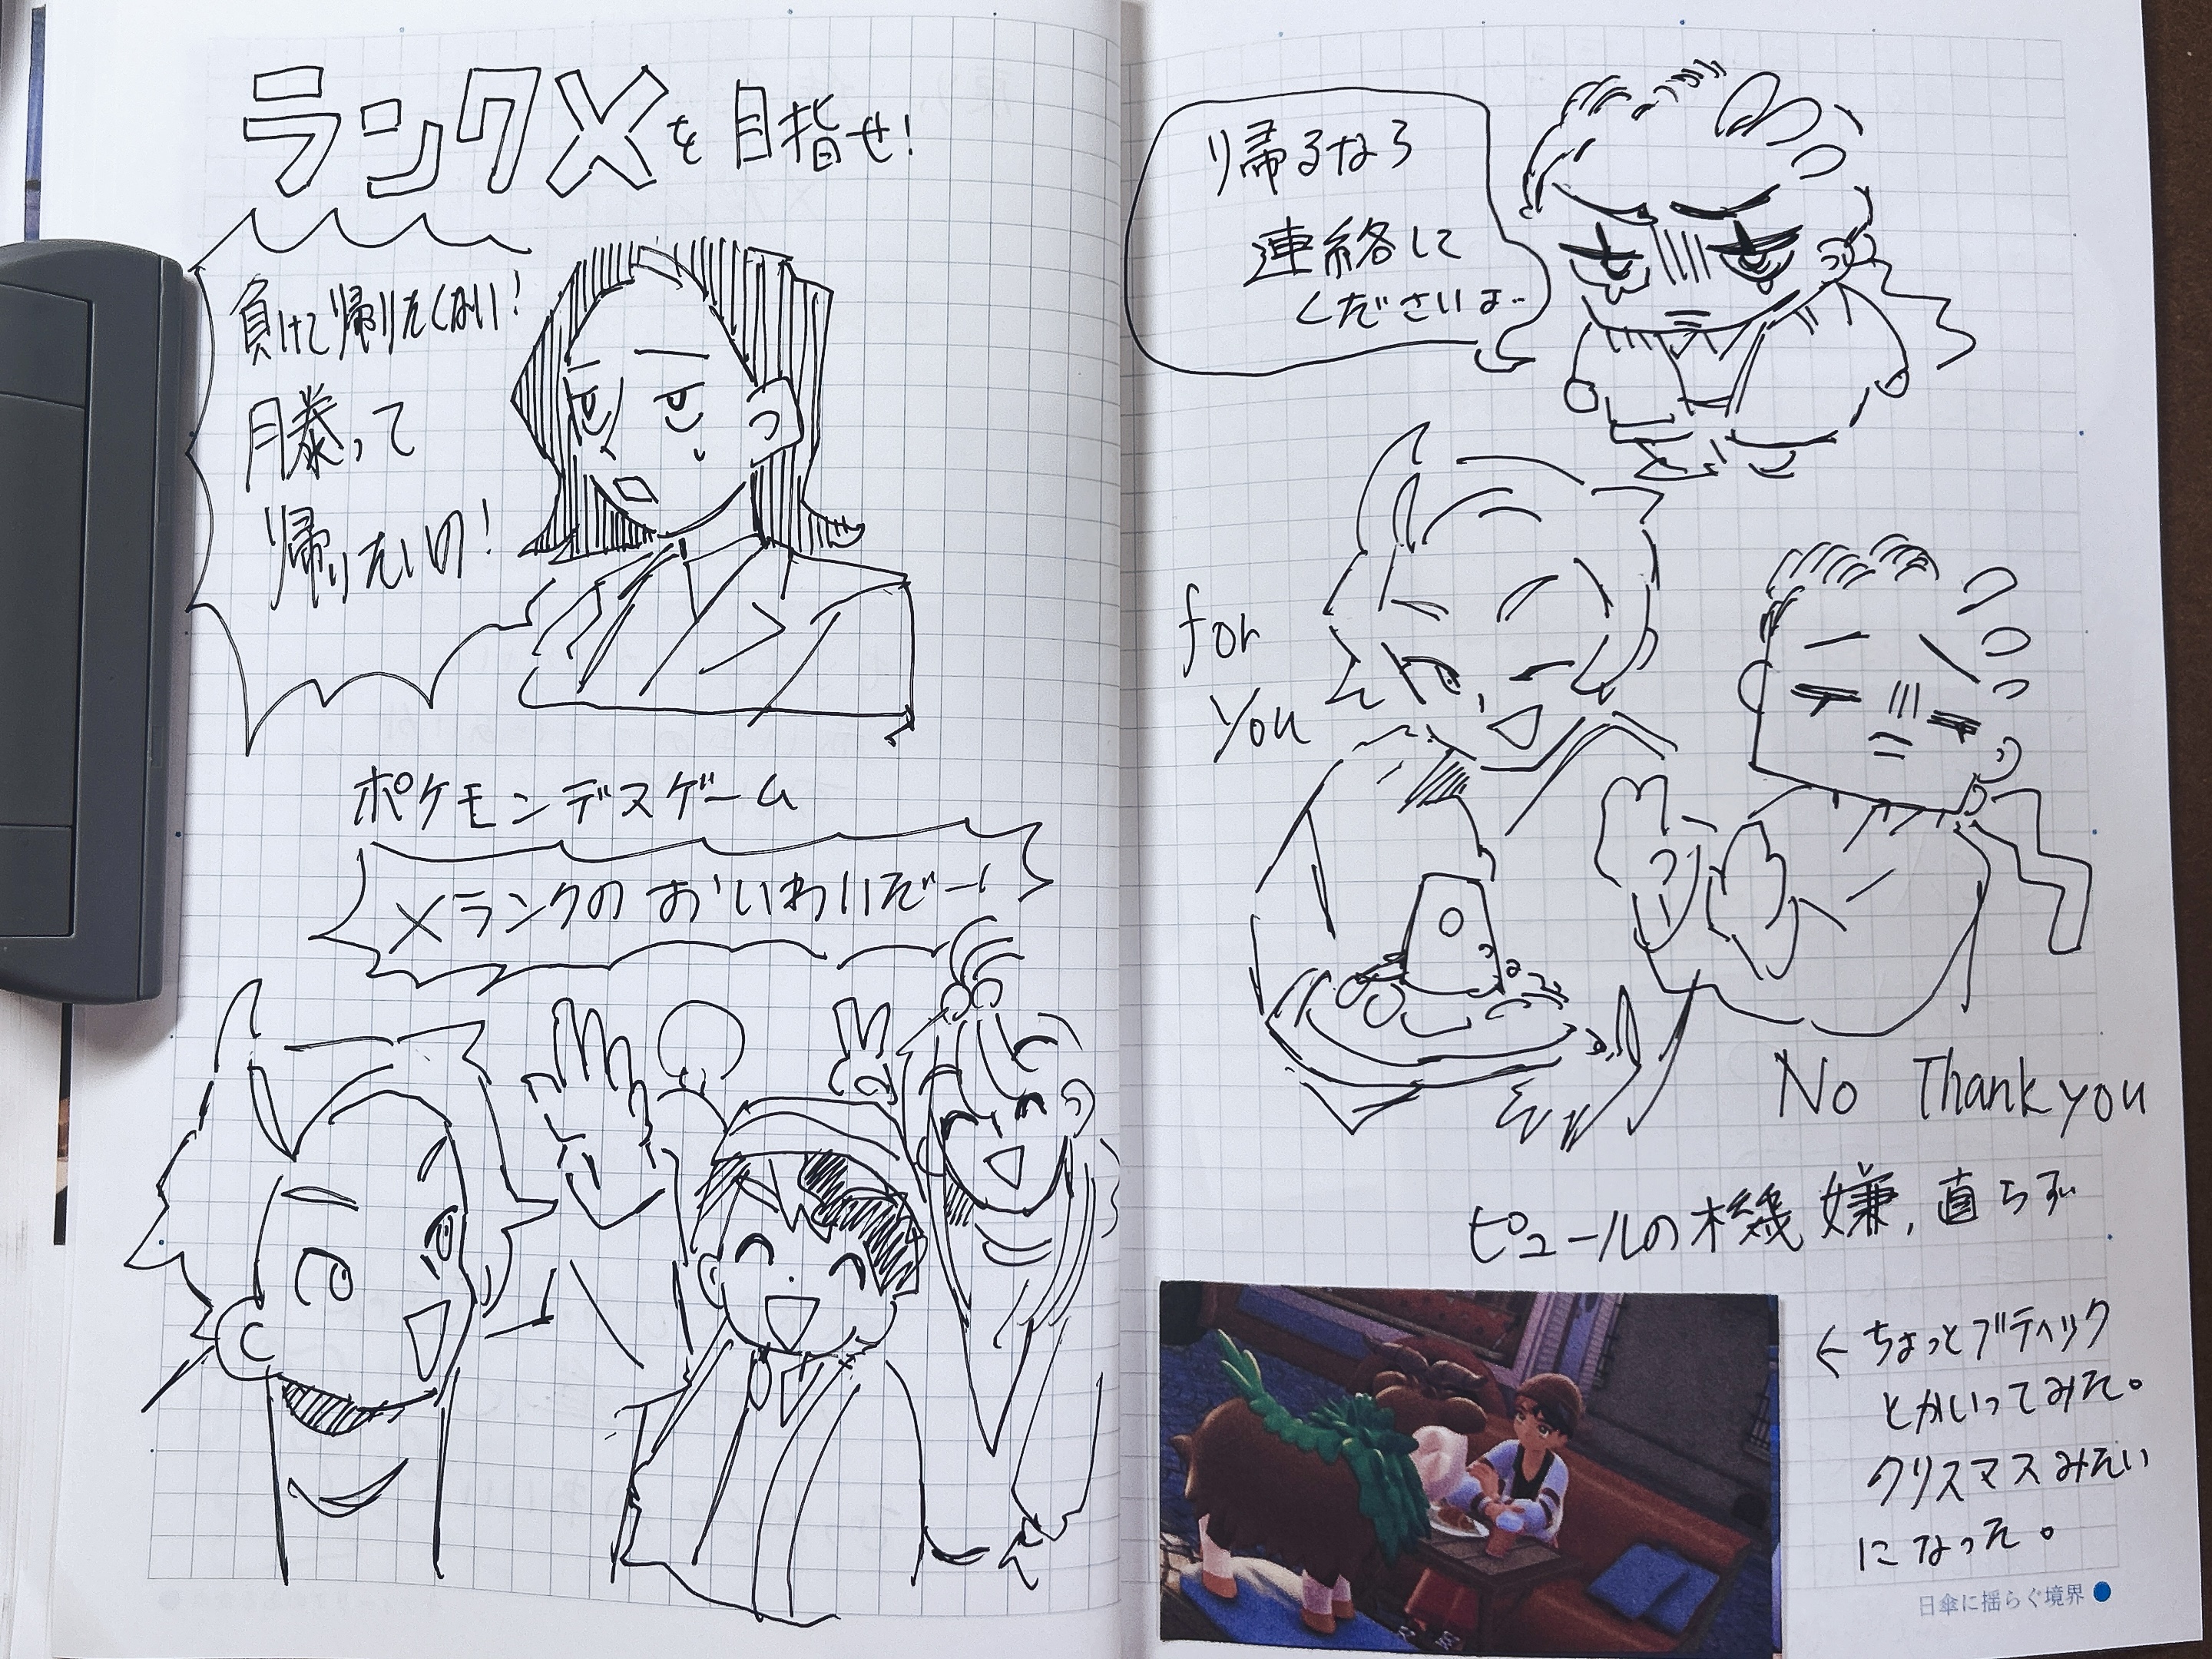 ランクXを目指せ!
負けて帰りたくない!
勝って
帰りたいの!
ポケモンデスゲーム
Xランクの おいわいだー!
帰るなら
連絡して
くださいよ..
for
You
No Thank you
ピュールの機嫌,直らず
←ちょっとブティック
とかいってみた。
クリスマスみたい
になった。
日傘に揺らぐ境界